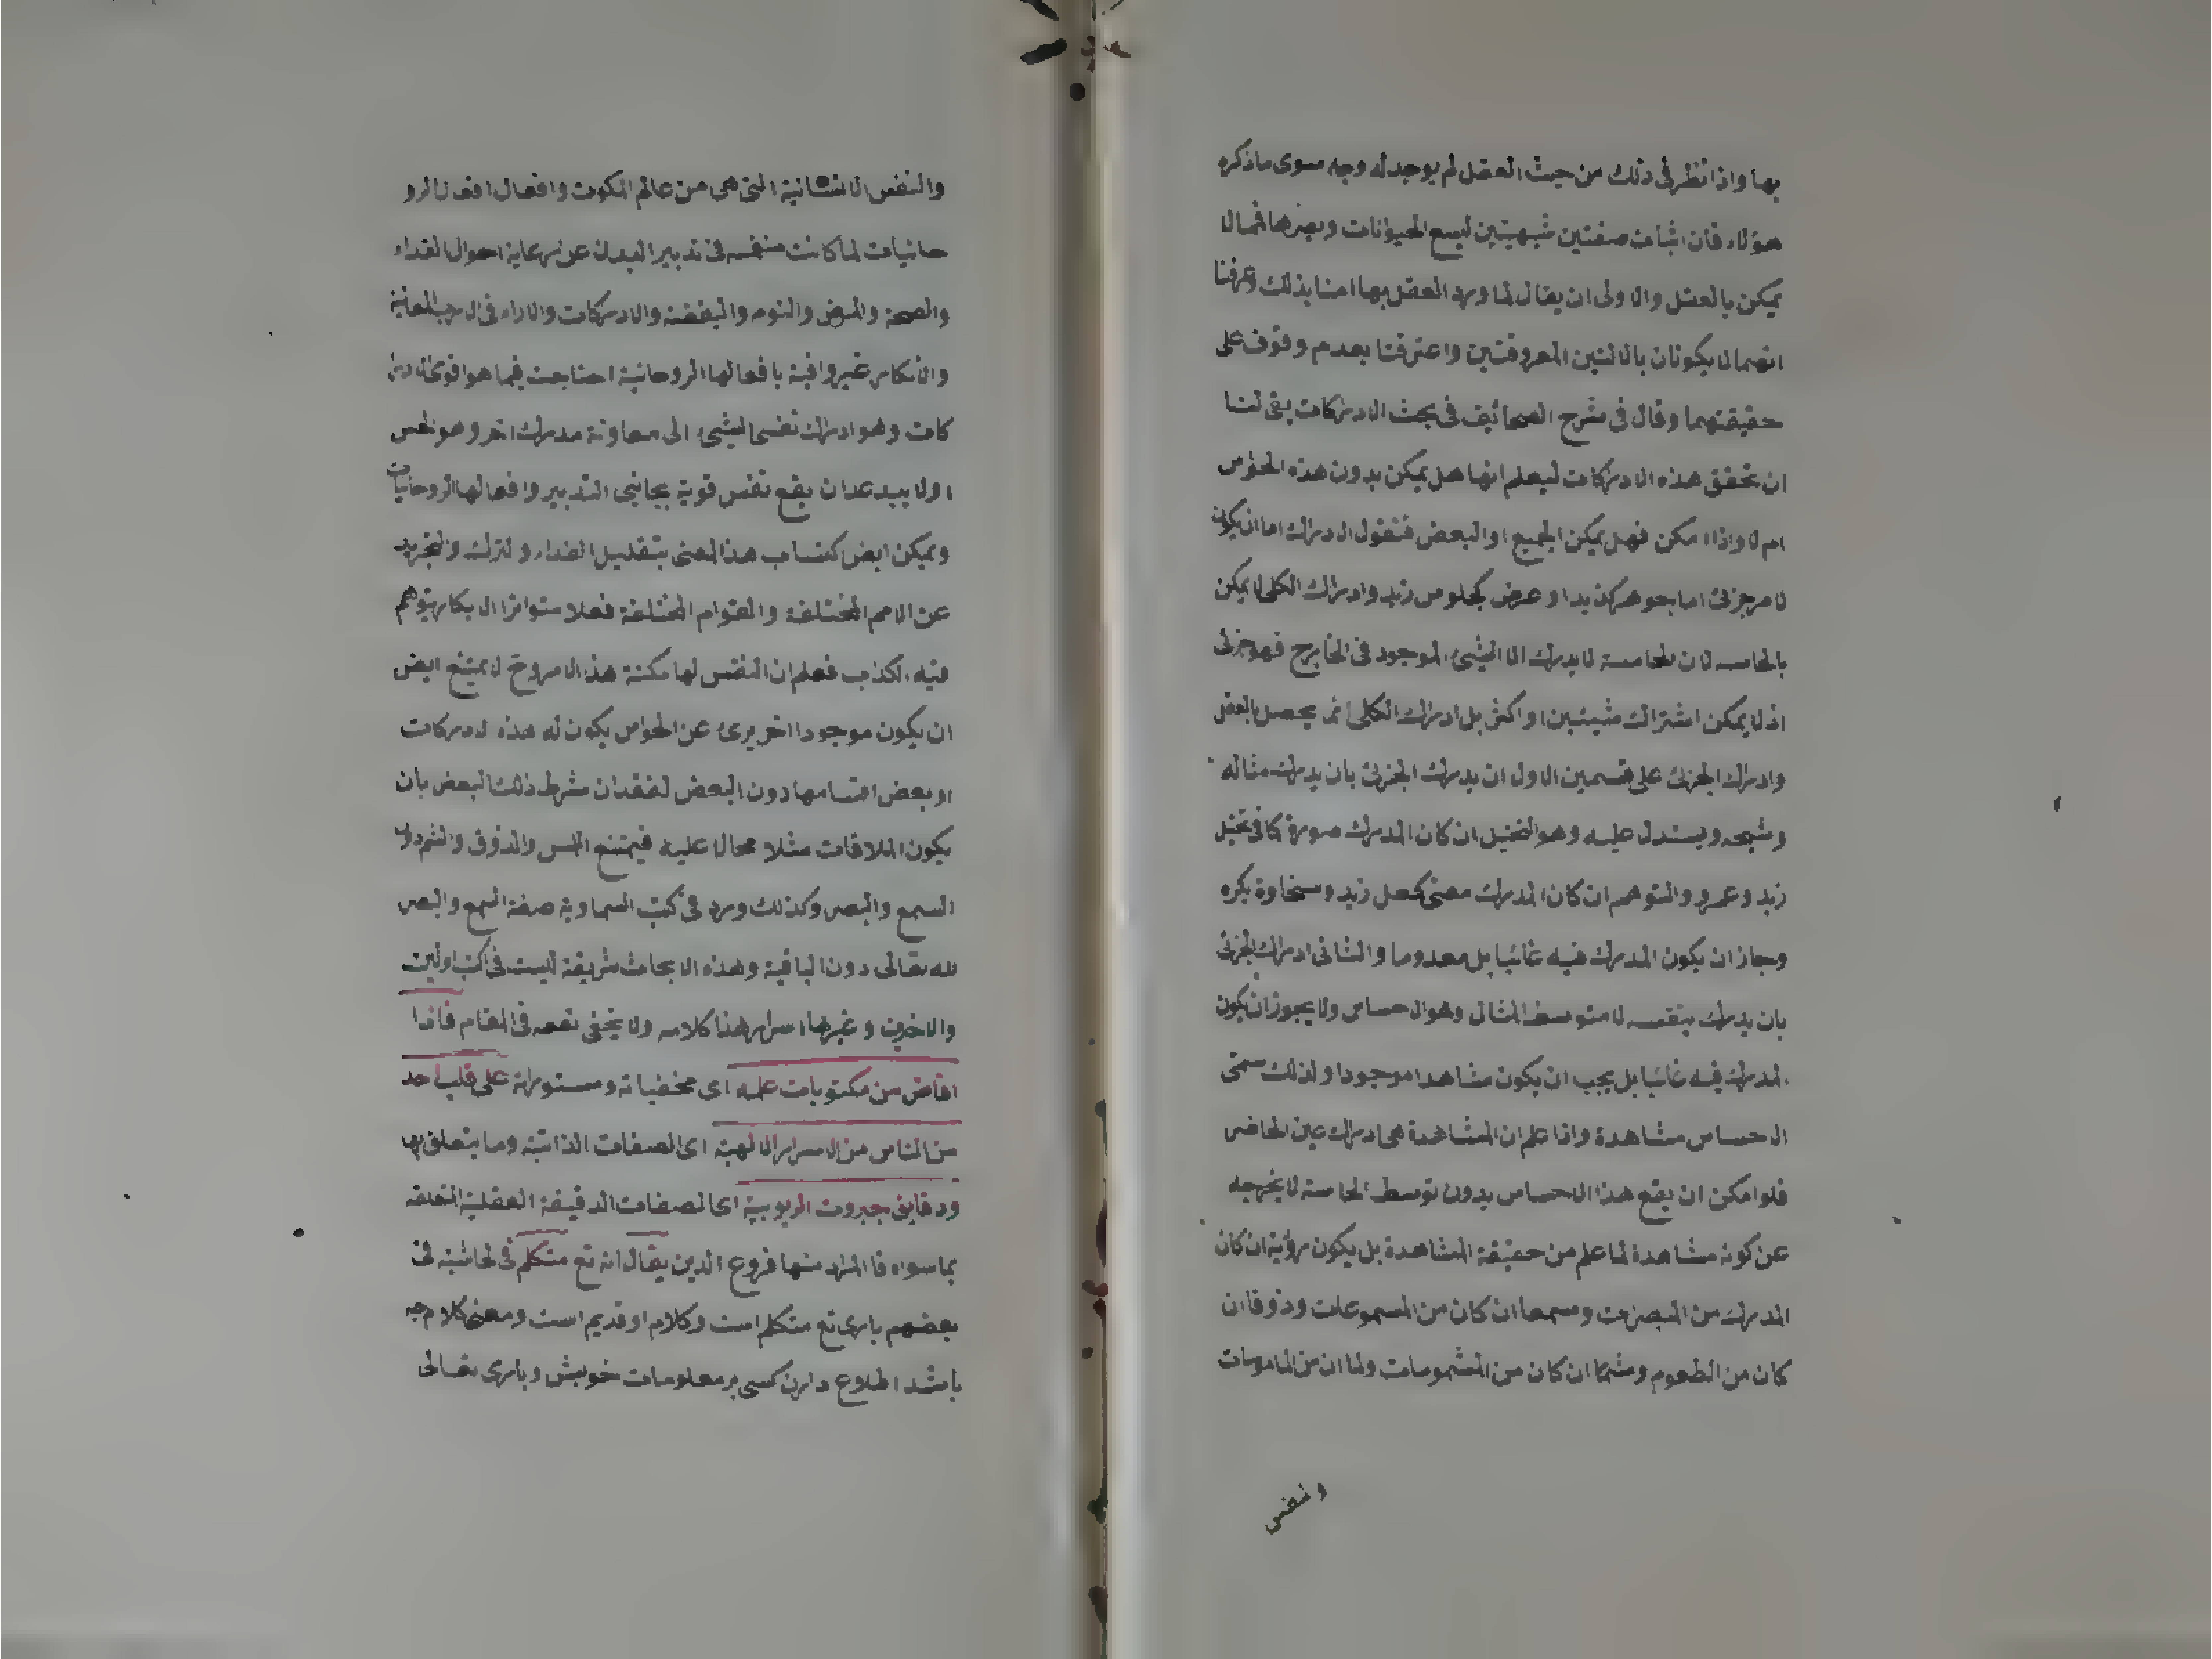 بها واذا نظر فى ذلك من حيث العقل لم يوجد له وجه سوى ما ذكره
هؤلاء فان اثبات صفتين شبهيتين لسمع الحيوانات وبصرها مما لا
يمكن بالعقل والاولى ان يقال لما ورد العقل بها امنا بذلك وعرفنا
انهما لا يكونان بالالتين المعروفتين واعترفنا بعدم وقوف على
حقيقتهما وقال فى شرح الصحائف فى بحث الادركات بقى لنا
ان تحقق هذه الادركات ليعلم انها هل يمكن بدون هذه الحواس
ام لا واذا امكن فهل يمكن الجميع او البعض فنقول الادراك اما ان يكون
لامر جزئى اما بجوهر كزيد او عرض كجلوس زيد وادراك الكلى لا يمكن
بالحاسه لان الحاسة لا يدرك الا الشىء الموجود فى الخارج فهو جزئى
اذ لا يمكن اشتراك شيئين او اكثر بل ادراك الكلى انما يحصل بالعقل
وادراك الجزئى على قسمين الاول ان يدرك الجزئى بان يدرك مثاله
وشبحه ويستدل عليه وهو التخيل ان كان المدرك صورة كما فى تخيل
زيد وعمرو والتوهم ان كان المدرك معنى كحعل زيد وسخاوة بكره
وجاز ان يكون المدرك فيه غائبا بل معدوما والثانى ادراك الجزئى
بان يدرك بنفسه لا متوسط المثال وهو الاحساس ولا يجوز ان يكون
المدرك فيه غائبا بل يجب ان يكون مشاهدا موجودا ولذلك سمى
الاحساس مشاهدة واذا علم ان المشاهدة هى ادراك عين الحاضر
فلو امكن ان يقع هذا الاحساس بدون توسط الحاسة لا يخرجه
عن كونه مشاهدة لما علم من حقيقة المشاهدة بل يكون رؤية ان كان
المدرك من المبصرت وسمعا ان كان من المسموعات وذوقا ان
كان من الطعوم وشما ان كان من المشمومات ولما ان من الماموسات
والنفس
والنفس الانسانية التى هى من عالم الملكوت وافعال افعال الرو
حانيات لما كانت منغمسه فى تدبير البدن عن رعاية احوال الغداء
والصحة والمرض والنوم واليقظة والادركات والاراء فى المعانية
والانكار غير وافية بافعالها الروحانية احتاجت فيما هو اقوى الادر
كات وهو ادراك نفس الشىء الى معاونة مدرك اخر وهو الحس
اولا يبعد ان يقع نفس قوية بجانبى التدبير وافعالها الروحانيات
ويمكن ايض كتساب هذا المعنى بتقليل الغداء ولترك والتجريد
عن الامم المختلفة والقوام المختلفة فعلا متواترا لا يكار يتوهم
فيه الكذب فعلم ان النفس لها مكنة هذا الامروح لا يمتنع ايض
ان يكون موجودا اخر برئ عن الحواس يكون له هذه لادركات
او بعض اقسامها دون البعض لفقدان شرط ذلك البعض بان
يكون الملاقات مثلا محالا عليه فيمتنع اللمس والذوق والشم دون
السمع والبصر وكذلك ورد فى كتب السماوية صفة السمع والبصر
لله تعالى دون الباقية وهذه الابحاث شريفة ليست فى كتب اولين
والاخرين وغيرها اسرار هذا كلامه ولا يخفى نفعه فى المقام فاذا
افاض من مكتوبات علمه اى مخفياته ومستوراته على قلب احد
من الناس من الاسرار الالهية اى الصفات الذاتية وما يتعلق بها
ودقايق جبروت الربوبية اى الصفات الدقيقة العقلية المتعلقه
بما سواه فا المراد منها فروع الدين يقال انه تع متكلم فى لحاشيه فى
بعضهم بارى تع متكلم است وكلام او قديم است ومعنى كلام چه
باشد اطلاع دارن كسى بر معلومات خويش وبارى تعالى